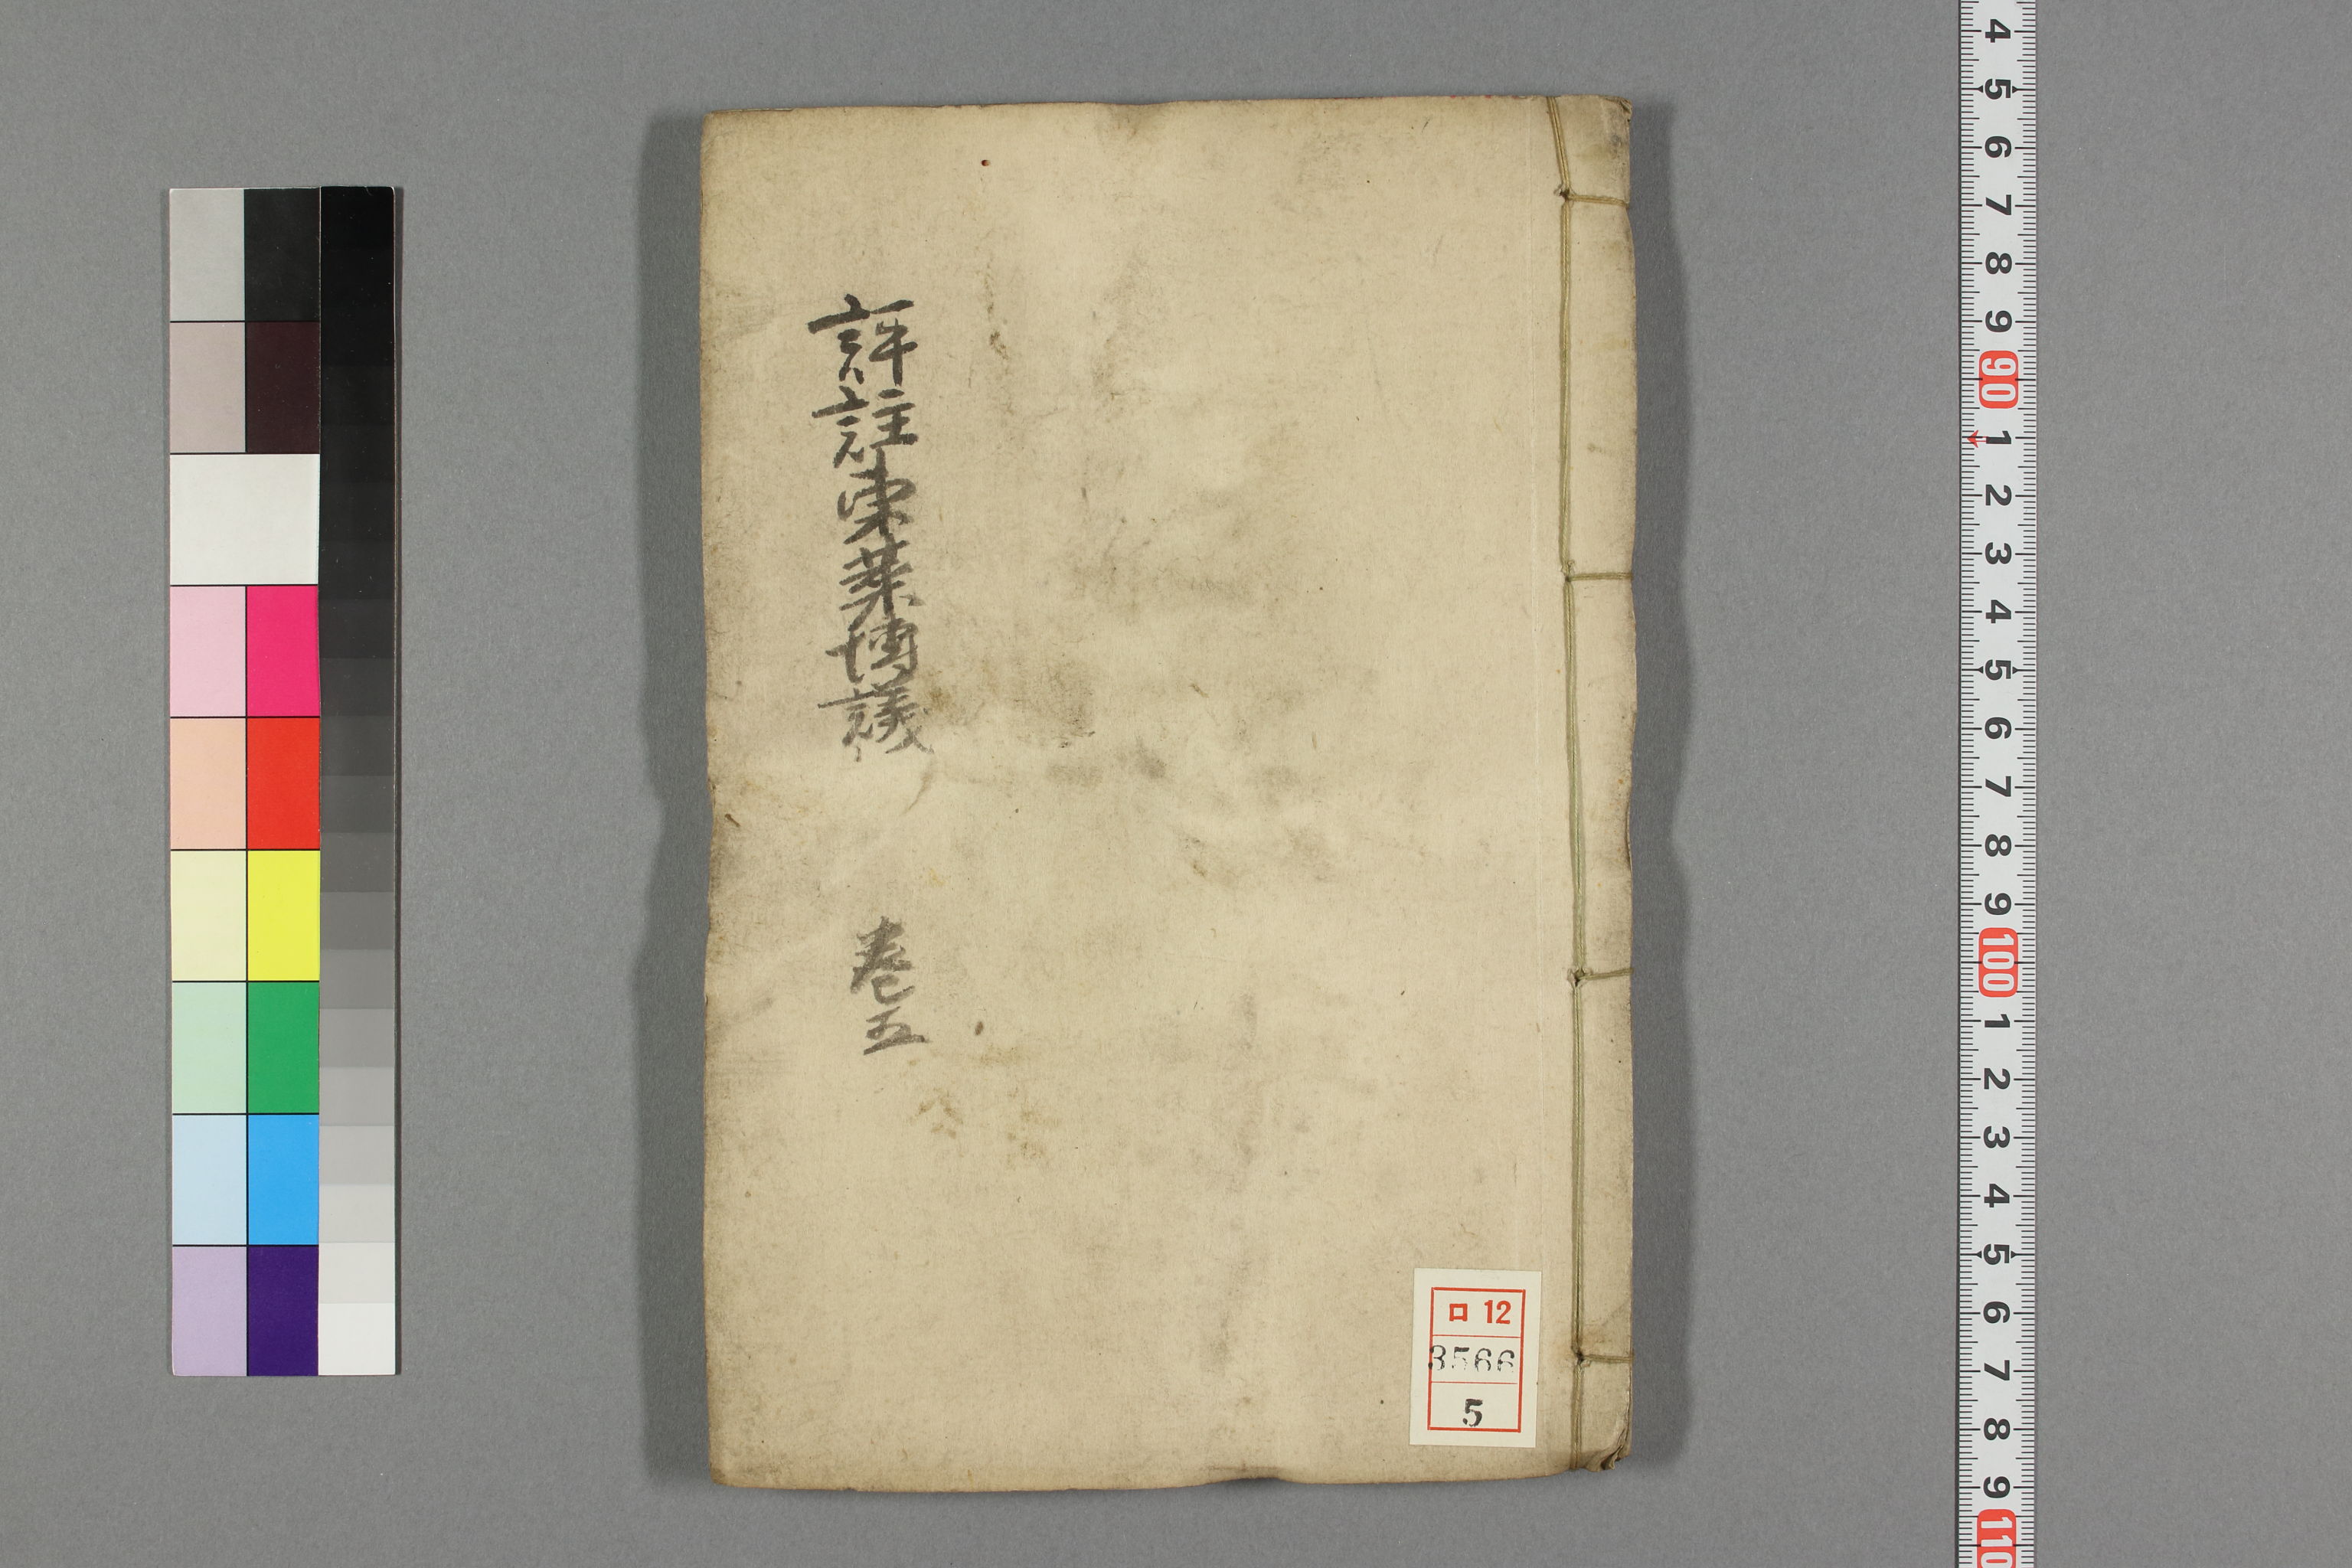 評註東萊博議
卷五
ロ 12
3566
5
4
5
6
7
8
9
90
1
2
3
4
5
6
7
8
9
100
1
2
3
4
5
6
7
8
9
110